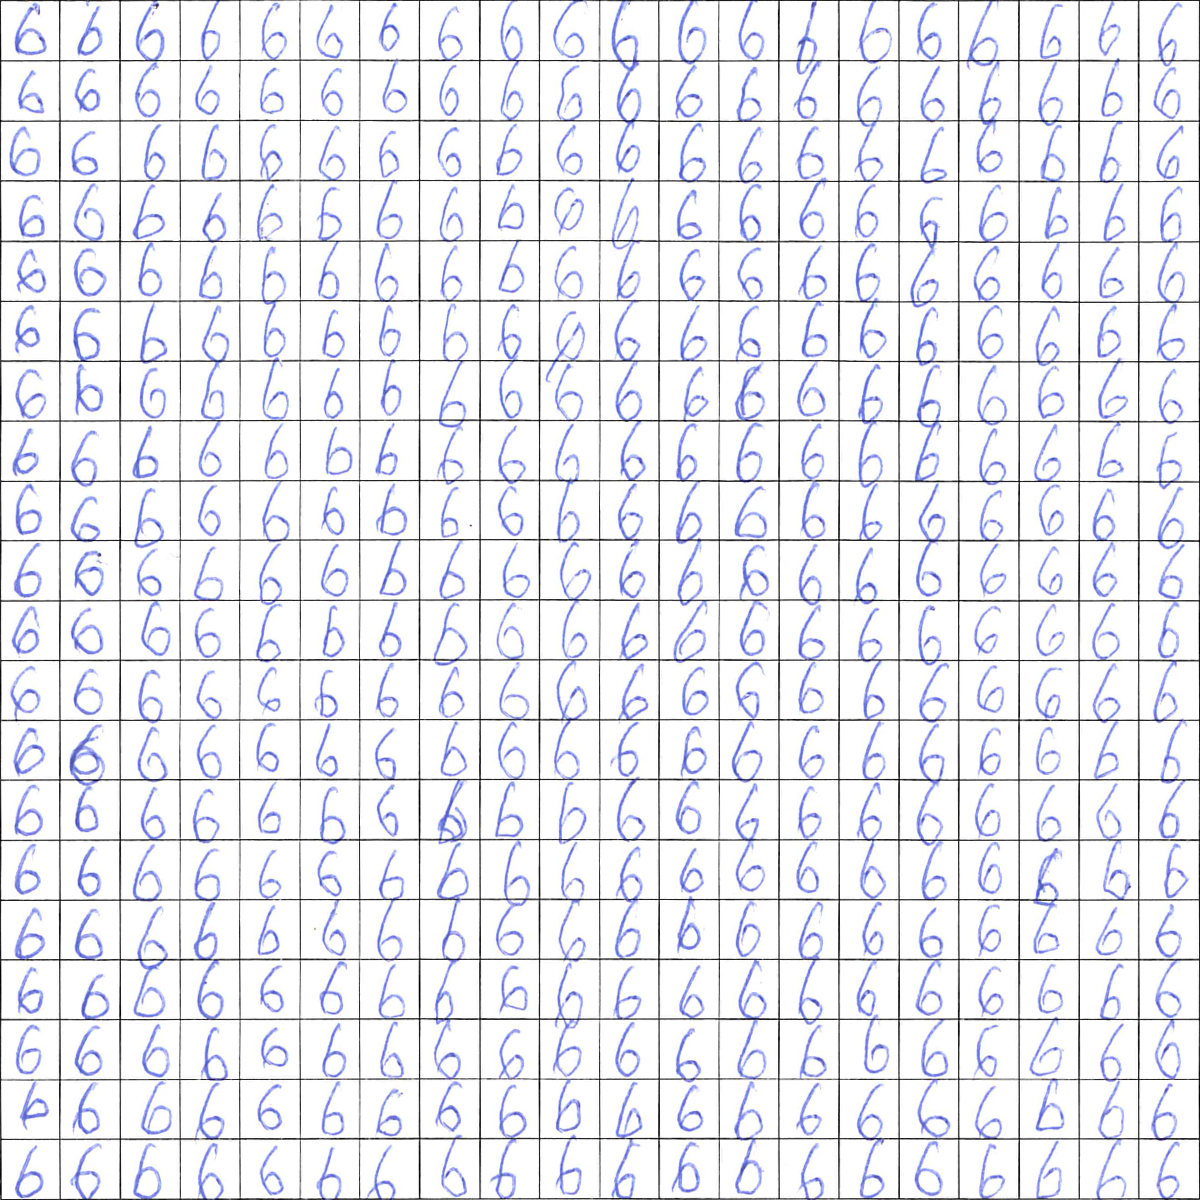 6 6 6 6 6 6 6 6 6 6 6 6 6 6 6 6 6 6 6 6
6 6 6 6 6 6 6 6 6 6 6 6 6 6 6 6 6 6 6 6
6 6 6 6 6 6 6 6 6 6 6 6 6 6 6 6 6 6 6 6
6 6 6 6 6 6 6 6 6 6 6 6 6 6 6 6 6 6 6 6
6 6 6 6 6 6 6 6 6 6 6 6 6 6 6 6 6 6 6 6
6 6 6 6 6 6 6 6 6 6 6 6 6 6 6 6 6 6 6 6
6 6 6 6 6 6 6 6 6 6 6 6 6 6 6 6 6 6 6 6
6 6 6 6 6 6 6 6 6 6 6 6 6 6 6 6 6 6 6 6
6 6 6 6 6 6 6 6 6 6 6 6 6 6 6 6 6 6 6 6
6 6 6 6 6 6 6 6 6 6 6 6 6 6 6 6 6 6 6 6
6 6 6 6 6 6 6 6 6 6 6 6 6 6 6 6 6 6 6 6
6 6 6 6 6 6 6 6 6 6 6 6 6 6 6 6 6 6 6 6
6 6 6 6 6 6 6 6 6 6 6 6 6 6 6 6 6 6 6 6
6 6 6 6 6 6 6 6 6 6 6 6 6 6 6 6 6 6 6 6
6 6 6 6 6 6 6 6 6 6 6 6 6 6 6 6 6 6 6 6
6 6 6 6 6 6 6 6 6 6 6 6 6 6 6 6 6 6 6 6
6 6 6 6 6 6 6 6 6 6 6 6 6 6 6 6 6 6 6 6
6 6 6 6 6 6 6 6 6 6 6 6 6 6 6 6 6 6 6 6
6 6 6 6 6 6 6 6 6 6 6 6 6 6 6 6 6 6 6 6
6 6 6 6 6 6 6 6 6 6 6 6 6 6 6 6 6 6 6 6